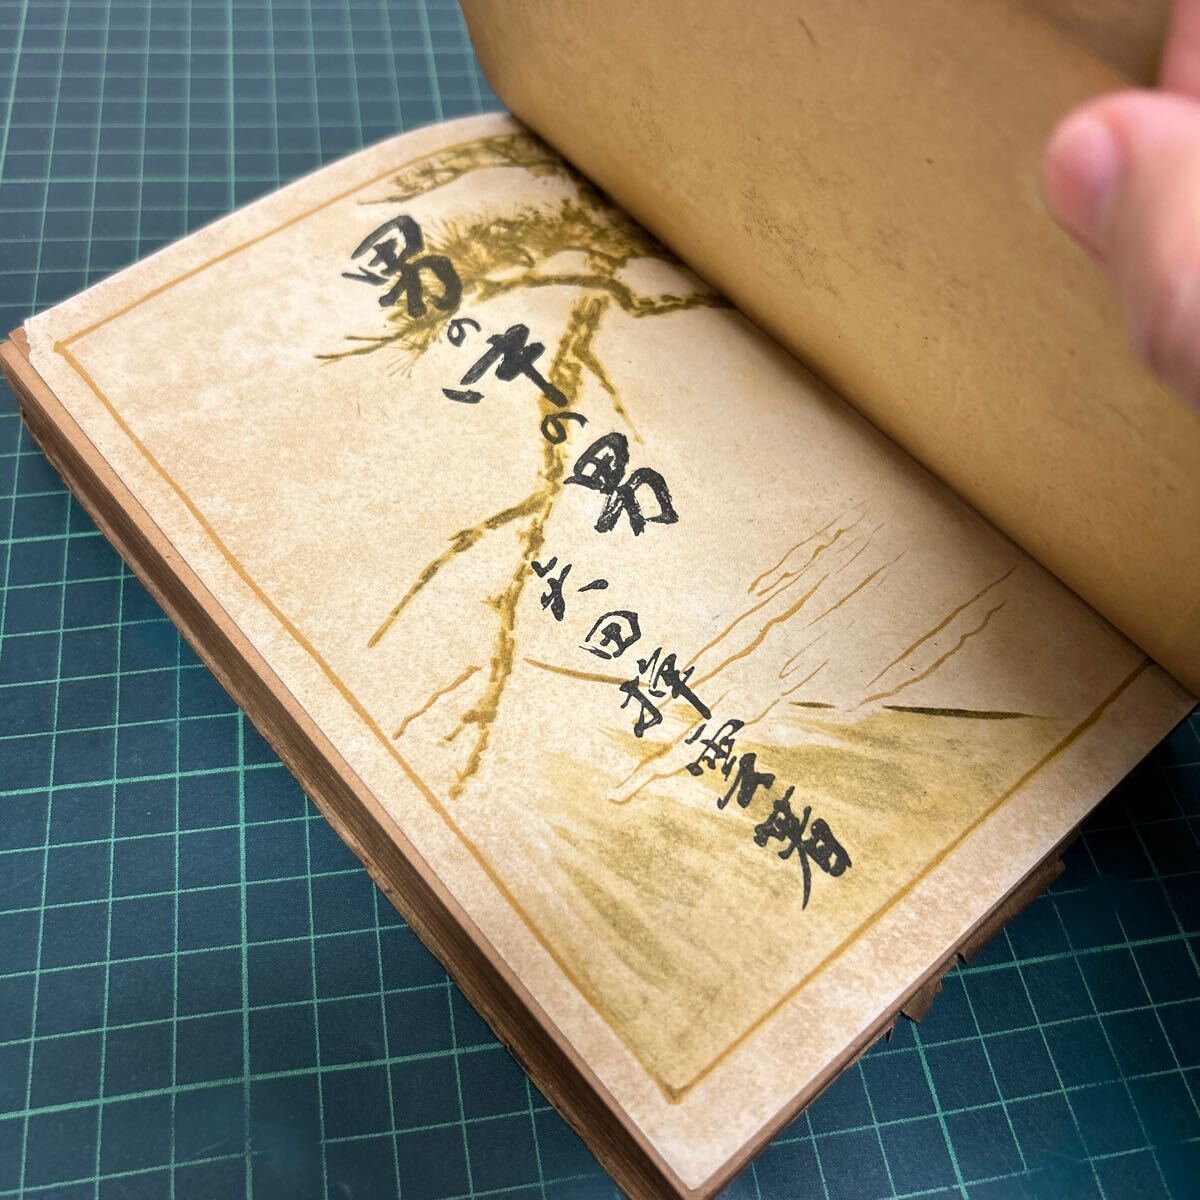 男の中の男 矢田挿雲著